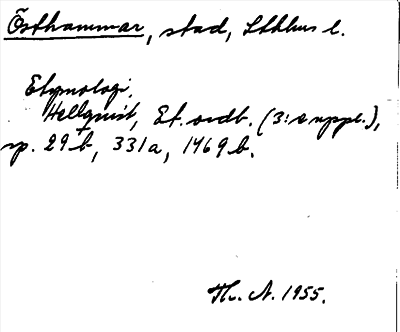 Östhammar, stad, Sthlms l.
Etymologi.
Hellquist, Et. ordb. (3:e uppl.),
sp. 29 b, 331a, 1469 b.
Th. A. 1955.